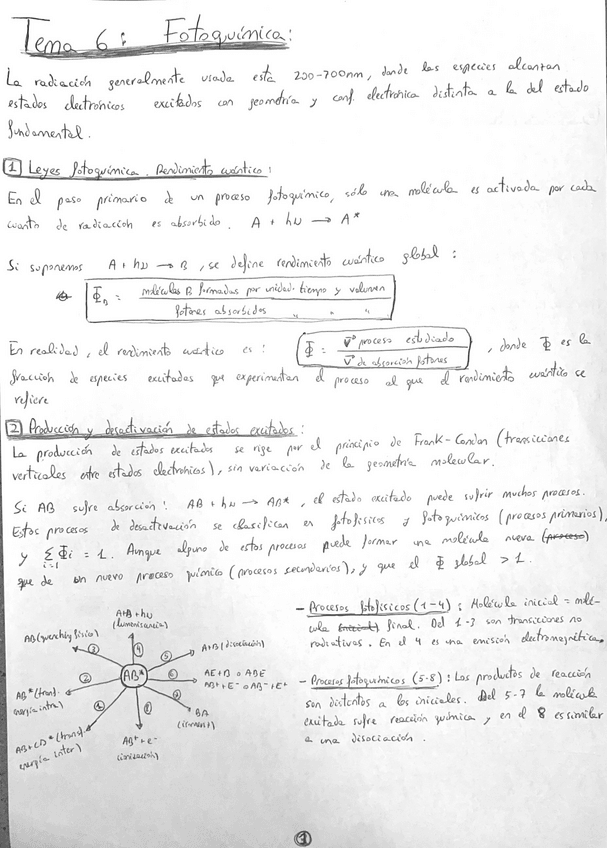 Tema 6: Fotoquímica:
La radiación generalmente usada está 200-700nm, donde las especies alcanzan
estados electrónicos excitados con geometría y conf. electrónica distinta a la del estado
fundamental.
1 Leyes fotoquímica. Rendimiento cuántico:
En el paso primario de un proceso fotoquímico, sólo una molécula es activada por cada
cuanto de radiación es absorbido. A + hν → A*
Si suponemos A + hν → B, se define rendimiento cuántico global:
Φ_B = moléculas B formadas por unidad. tiempo y volumen
fotones absorbidos " " "
En realidad, el rendimiento cuántico es: Φ = Vº proceso estudiado / Vº de absorción fotones, donde Φ es la
fracción de especies excitadas que experimentan el proceso al que el rendimiento cuántico se
refiere
2 Producción y desactivación de estados excitados:
La producción de estados excitados se rige por el principio de Frank-Condon (transiciones
verticales entre estados electrónicos), sin variación de la geometría molecular.
Si AB sufre absorción: AB + hν → AB*, el estado excitado puede sufrir muchos procesos.
Estos procesos de desactivación se clasifican en fotofísicos y fotoquímicos (procesos primarios),
y Σ Φi = 1. Aunque alguno de estos procesos puede formar una molécula nueva (proceso)
i=1
que de un nuevo proceso químico (procesos secundarios), y que el Φ global > 1.
A+B+hν
(luminiscencia)
AB (quenching físico)
A+B (disociación)
AB* (transf.
energía intra)
AE+B o ABE
AB⁺+E⁻ o AB⁻+E⁺
AB+CD* (transf.
energía inter)
AB⁺+e⁻
(ionización)
BA
(isomeriz.)
AB*
1
2
3
4
5
6
7
8
- Procesos fotofísicos (1-4): Molécula inicial = molé-
cula final. Del 1-3 son transiciones no
radiativas. En el 4 es una emisión electromagnética.
- Procesos fotoquímicos (5-8): Los productos de reacción
son distintos a los iniciales. Del 5-7 la molécula
excitada sufre reacción química y en el 8 es similar
a una disociación.
1